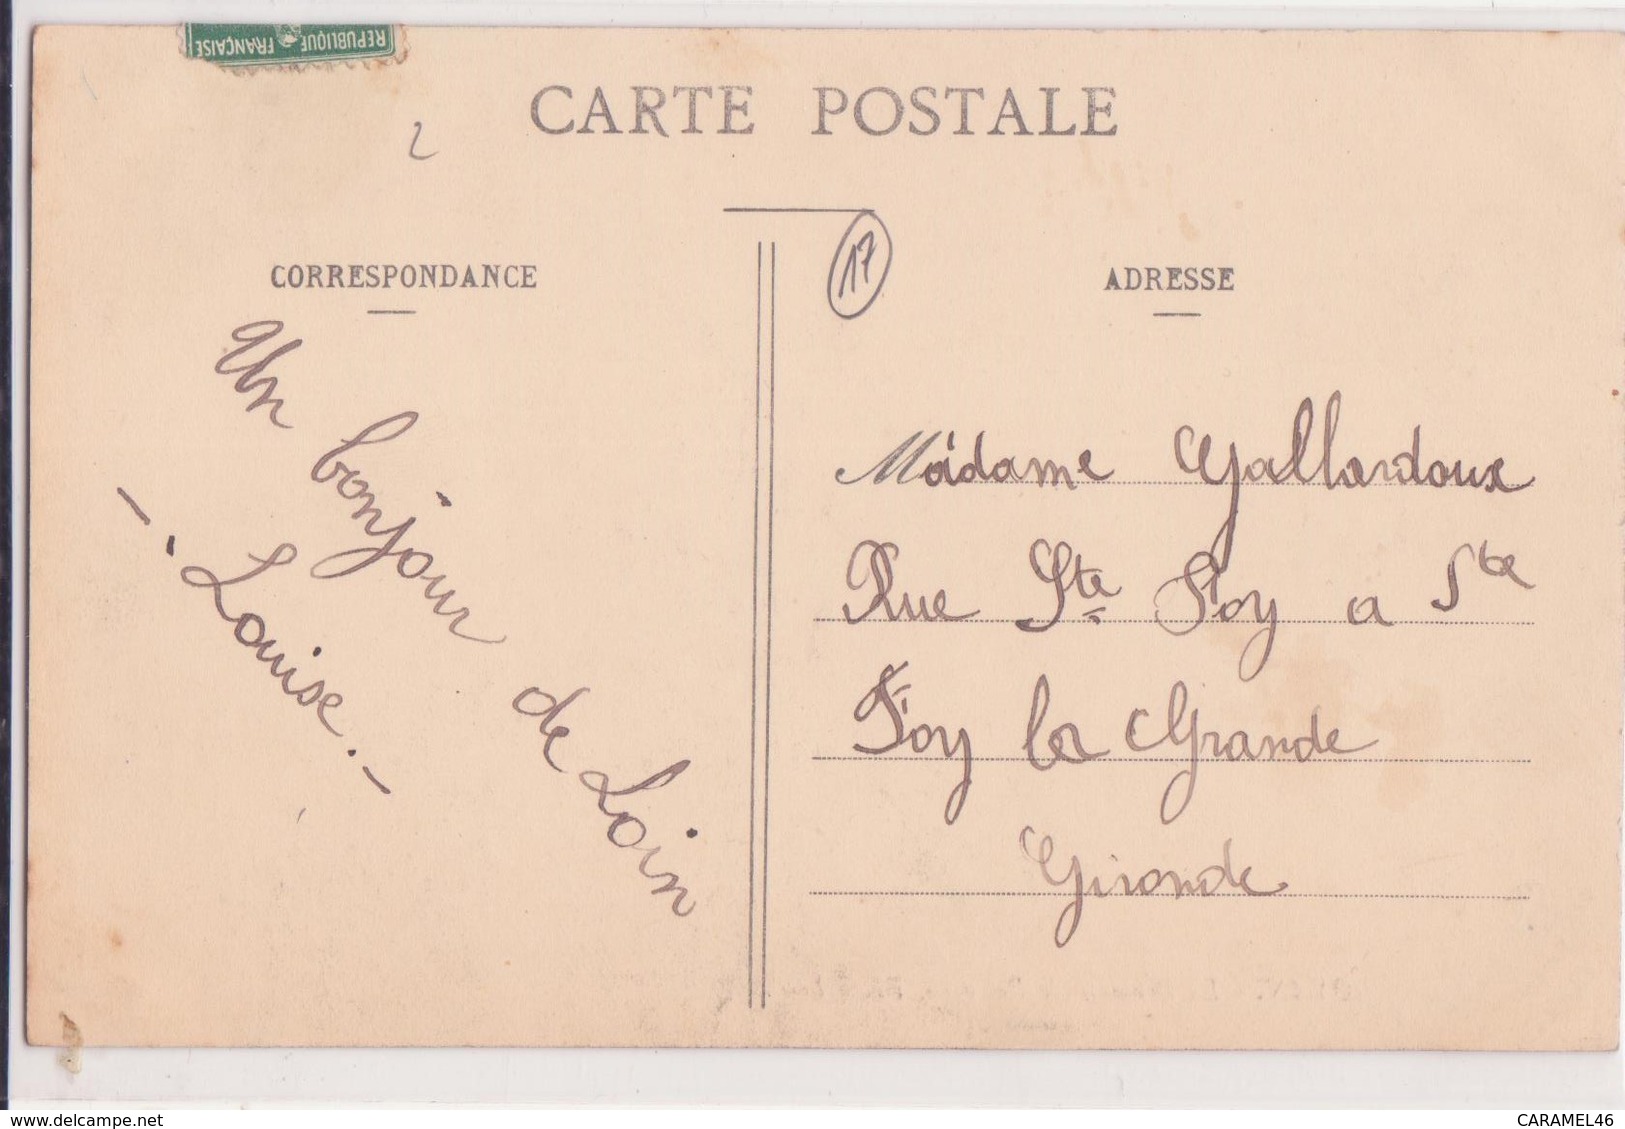 REPUBLIQUE FRANÇAISE
CARTE POSTALE
2
CORRESPONDANCE
Un bonjour de Loin
- . Louise . -
17
ADRESSE
Madame Gallardoux
Rue Ste Foy a Ste
Foy la Grande
Gironde
CARAMEL46